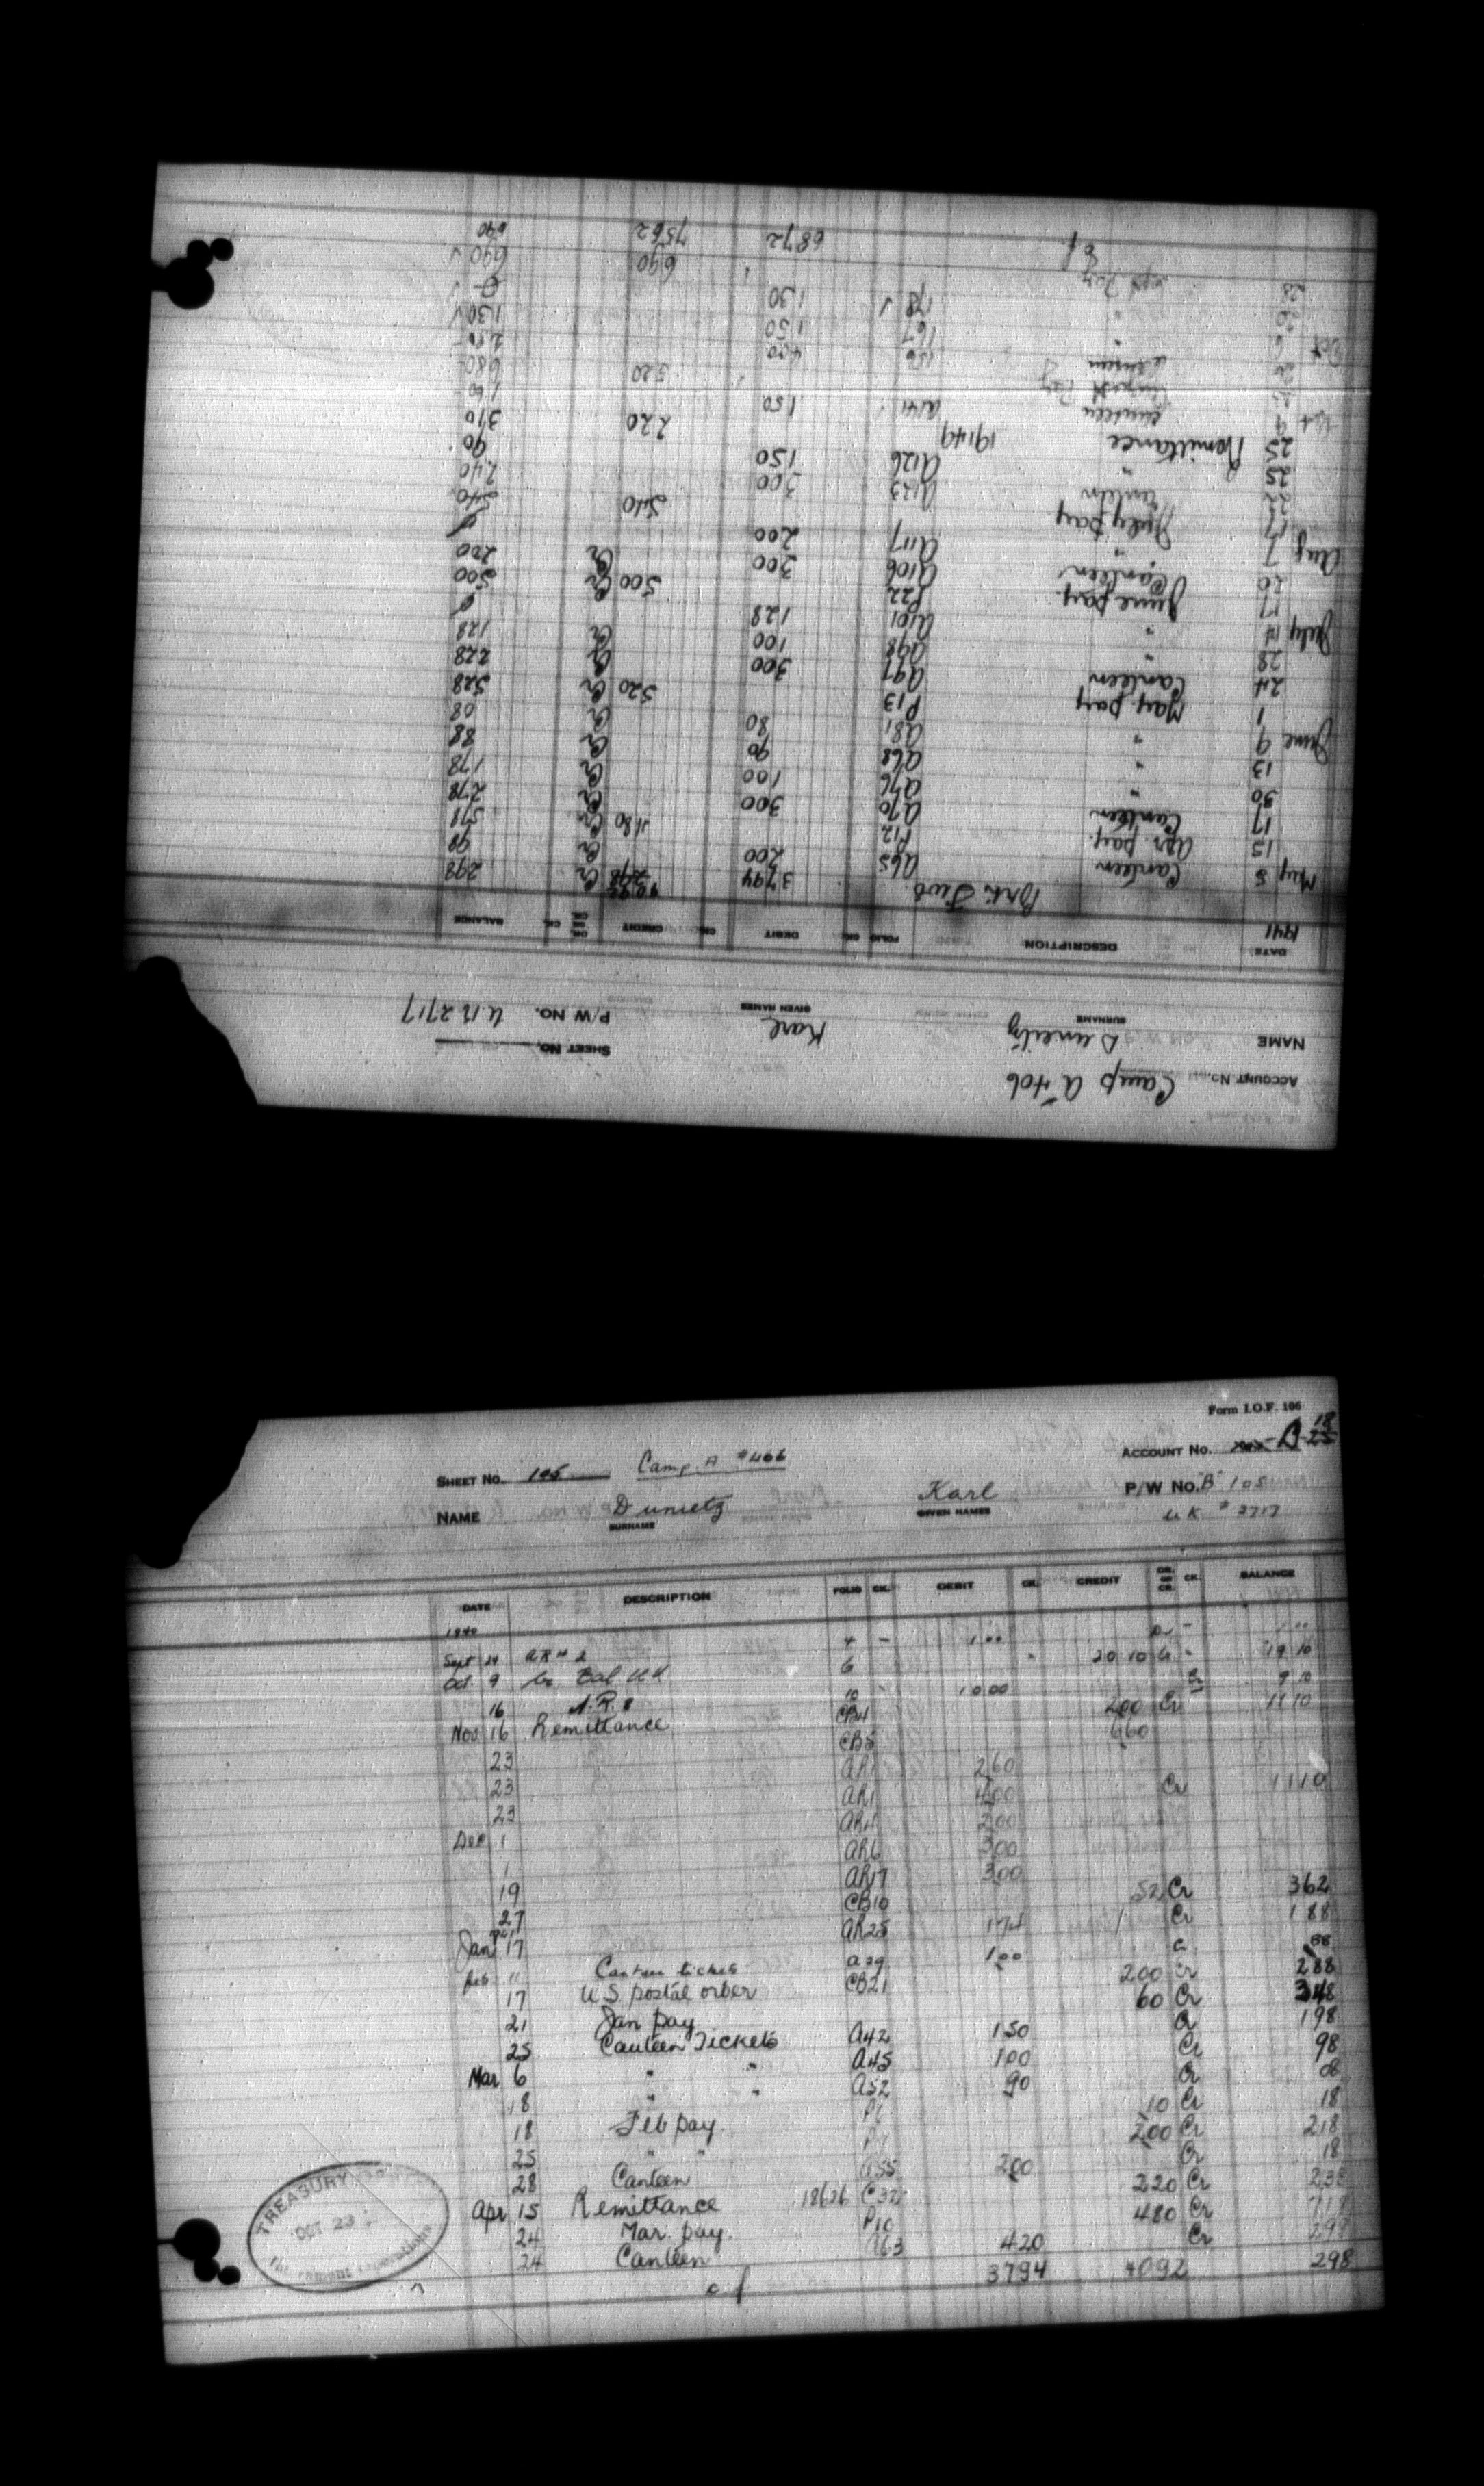 Camp A 406
ACCOUNT No.
SHEET No.
NAME Dunietz Karl P/W NO. U.K 2717
SURNAME GIVEN NAMES
DATE DESCRIPTION FOLIO CK. DEBIT CK. CREDIT DR. OR CR. CK. BALANCE
1941 Brt. Fwd. 3794 4092 Cr 298
May 5 Canteen A65 200 Cr 98
15 Apr. pay. P12 480 Cr 578
17 Canteen A70 300 Cr 278
30 " A76 100 Cr 178
13 " A68 90 Cr 88
June 9 " A81 80 Cr 08
1 May pay P13 520 Cr 528
24 Canteen A97 300 Cr 228
28 " A98 100 Cr 128
July 1st " A101 128
17 June pay. P22 500 Cr 500
20 Canteen A106 300 Cr 200
Aug 7 " A117 200
17 July pay 240 240
22 Canteen A123 300 240
25 " A126 150 90
25 Remittance 19149 220 310
9 Canteen A141 150 160
August Pay 520 680
26 Canteen 156 400 280
Oct 6 " 167 150 130
20 " 178 130 0
28 Sept Pay 690 690
cf 6872 7562 690
Form I.O.F. 106
SHEET No. 105 Camp. A #406 ACCOUNT No. B-18 25
NAME Dunietz Karl P/W No. "B" 105
SURNAME GIVEN NAMES U K # 2717
DATE DESCRIPTION FOLIO CK. DEBIT CK. CREDIT DR. OR CR. CK. BALANCE
1940
Sept 24 A R # 2 4 - 1 00 Dr - 1 00
Oct. 9 Cr Bal. U K 6 20 10 Cr - 19 10
16 A.R. 8 10 - 10 00 Cr 9 10
Nov 16 Remittance CB4 200 Cr 11 10
23 CB5 660
23 AR1 260
23 AR1 400 Cr 1110
Dec 1 AR4 200
1 AR6 300
19 AR17 300
27 CB10 52 Cr 362
1941
Jan 17 AR25 174 Cr 188
Feb 11 Canteen tickets A29 100 Cr 88
17 U.S. postal order CB21 200 Cr 288
21 Jan pay 60 Cr 348
25 Canteen Tickets A42 150 Cr 198
Mar 6 " " A45 100 Cr 98
18 " " A52 90 Cr 08
18 Feb pay. P6 10 Cr 18
25 " " P7 200 Cr 218
28 Canteen A55 200 Cr 18
Apr 15 Remittance 18626 C32 220 Cr 238
24 Mar. pay. P10 480 Cr 718
24 Canteen A63 420 Cr 298
c.f 3794 4092 298
TREASURY
OCT 23
Internment Operations